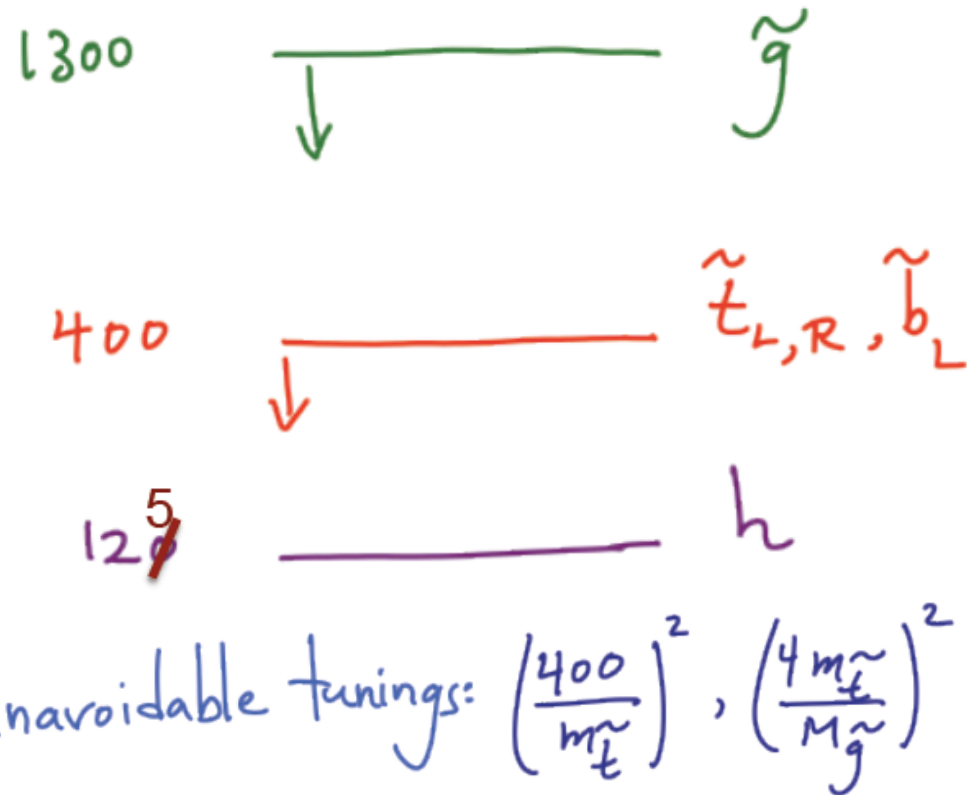 1300 g̃
400 t̃_L,R, b̃_L
125 h
navoidable tunings: (400/m_t̃)², (4m_t̃/M_g̃)²